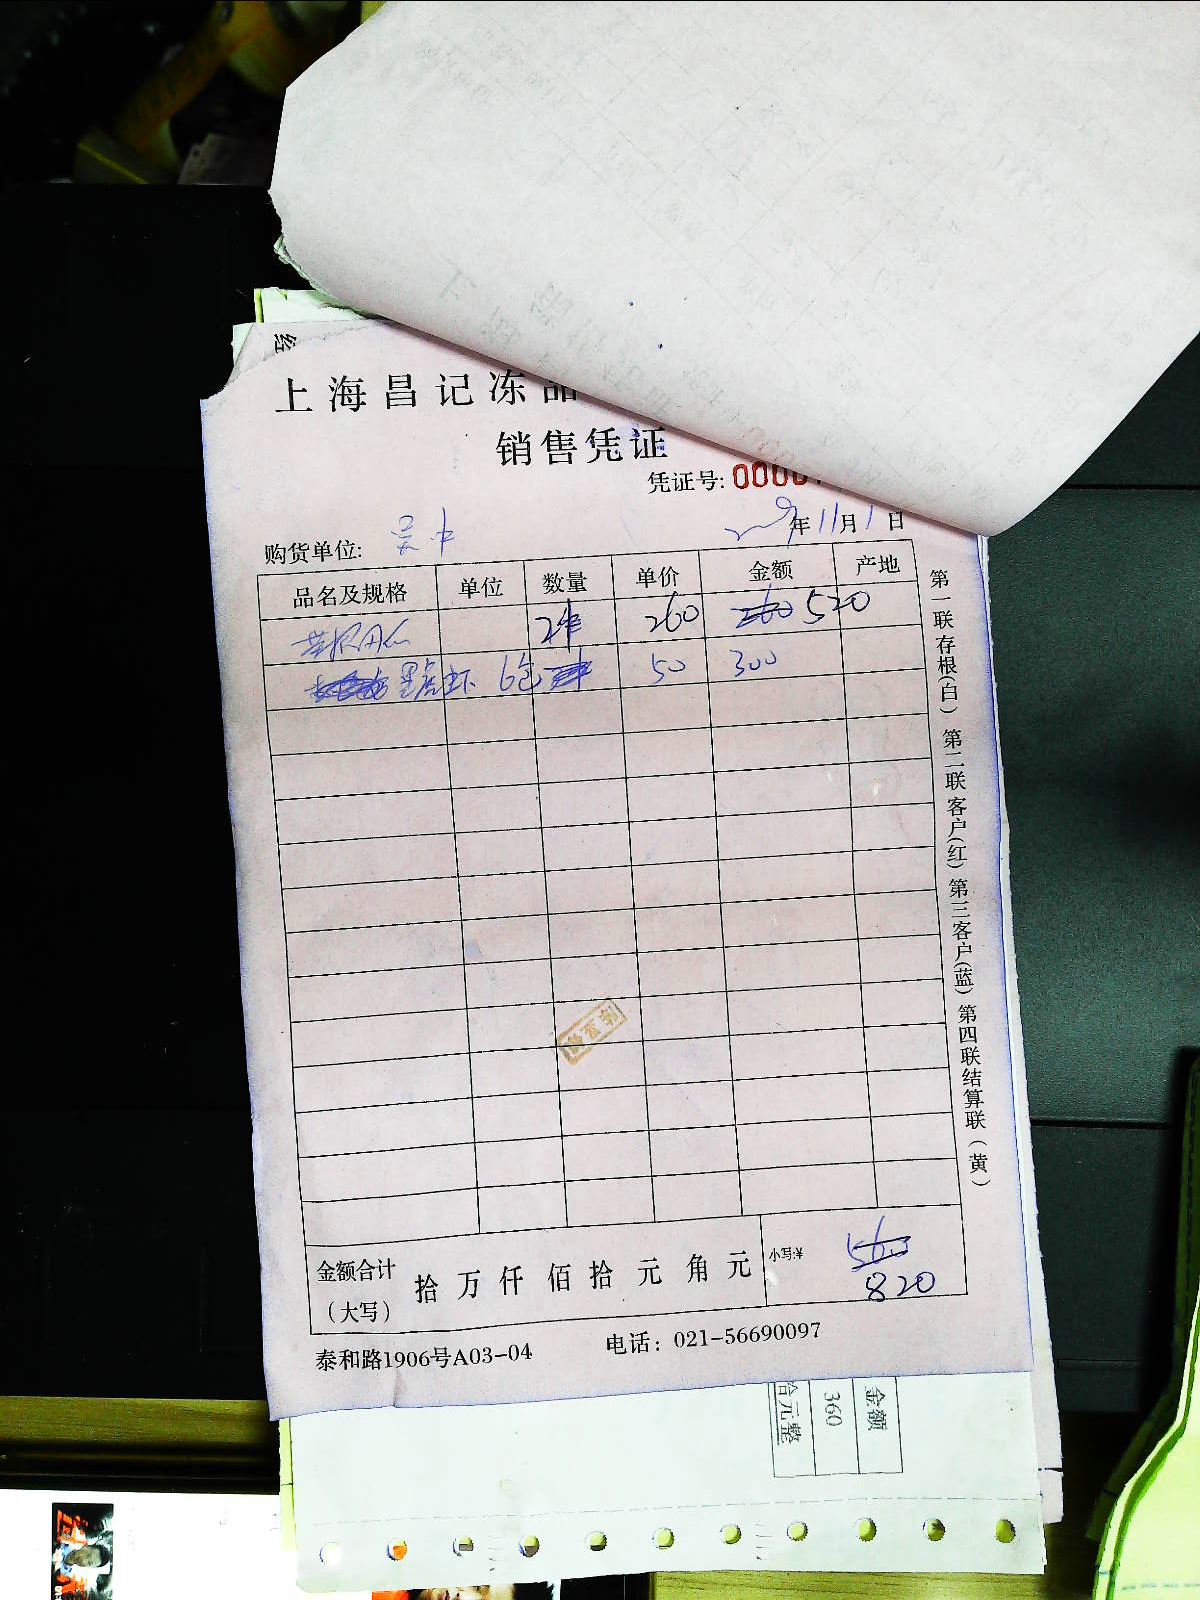 上海昌记冻品
销售凭证
凭证号: 0000
年 11月 1日
购货单位: 吴中
品名及规格 单位 数量 单价 金额 产地
2件 260 260 520
黑虎虾 6包 50 300
金额合计 (大写) 拾 万 仟 佰 拾 元 角 元 小写:¥ 560 820
泰和路1906号A03-04 电话: 021-56690097
第一联存根(白) 第二联客户(红) 第三客户(蓝) 第四联结算联(黄)
金额
360
拾元整